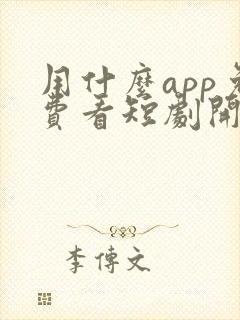 用什麼app免
費看短劇開
李傳文